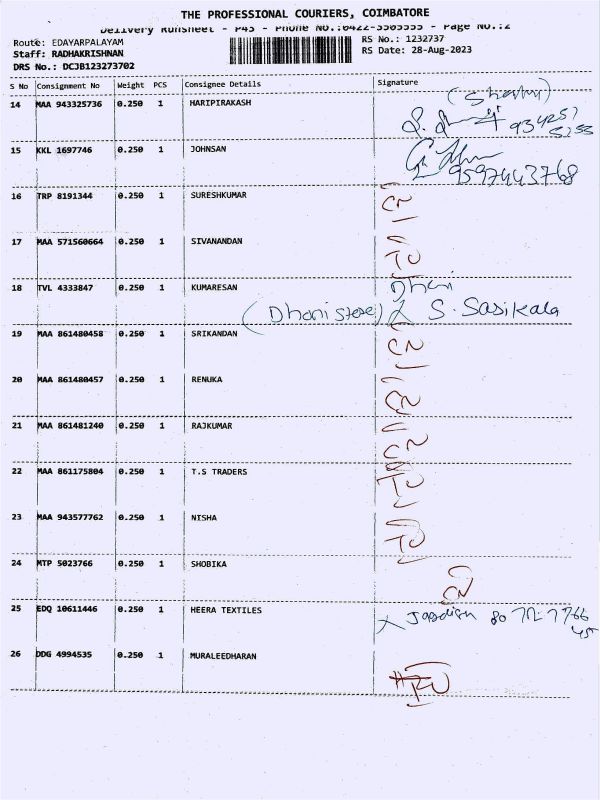 THE PROFESSIONAL COURIERS, COIMBATORE
Delivery Runsheet - P45 - Phone No.:0422-3505555 - Page No.:2
Route: EDAYARPALAYAM
RS No.: 1232737
Staff: RADHAKRISHNAN
RS Date: 28-Aug-2023
DRS No.: DCJB123273702
S No Consignment No Weight PCS Consignee Details Signature
14 MAA 943325736 0.250 1 HARIPIRAKASH
15 KKL 1697746 0.250 1 JOHNSAN
9597443768
16 TRP 8191344 0.250 1 SURESHKUMAR
17 MAA 571560664 0.250 1 SIVANANDAN
18 TVL 4333847 0.250 1 KUMARESAN
S. Sasikala
19 MAA 861480458 0.250 1 SRIKANDAN
20 MAA 861480457 0.250 1 RENUKA
21 MAA 861481240 0.250 1 RAJKUMAR
22 MAA 861175804 0.250 1 T.S TRADERS
23 MAA 943577762 0.250 1 NISHA
24 MTP 5023766 0.250 1 SHOBIKA
25 EDQ 10611446 0.250 1 HEERA TEXTILES
26 DDG 4994535 0.250 1 MURALEEDHARAN